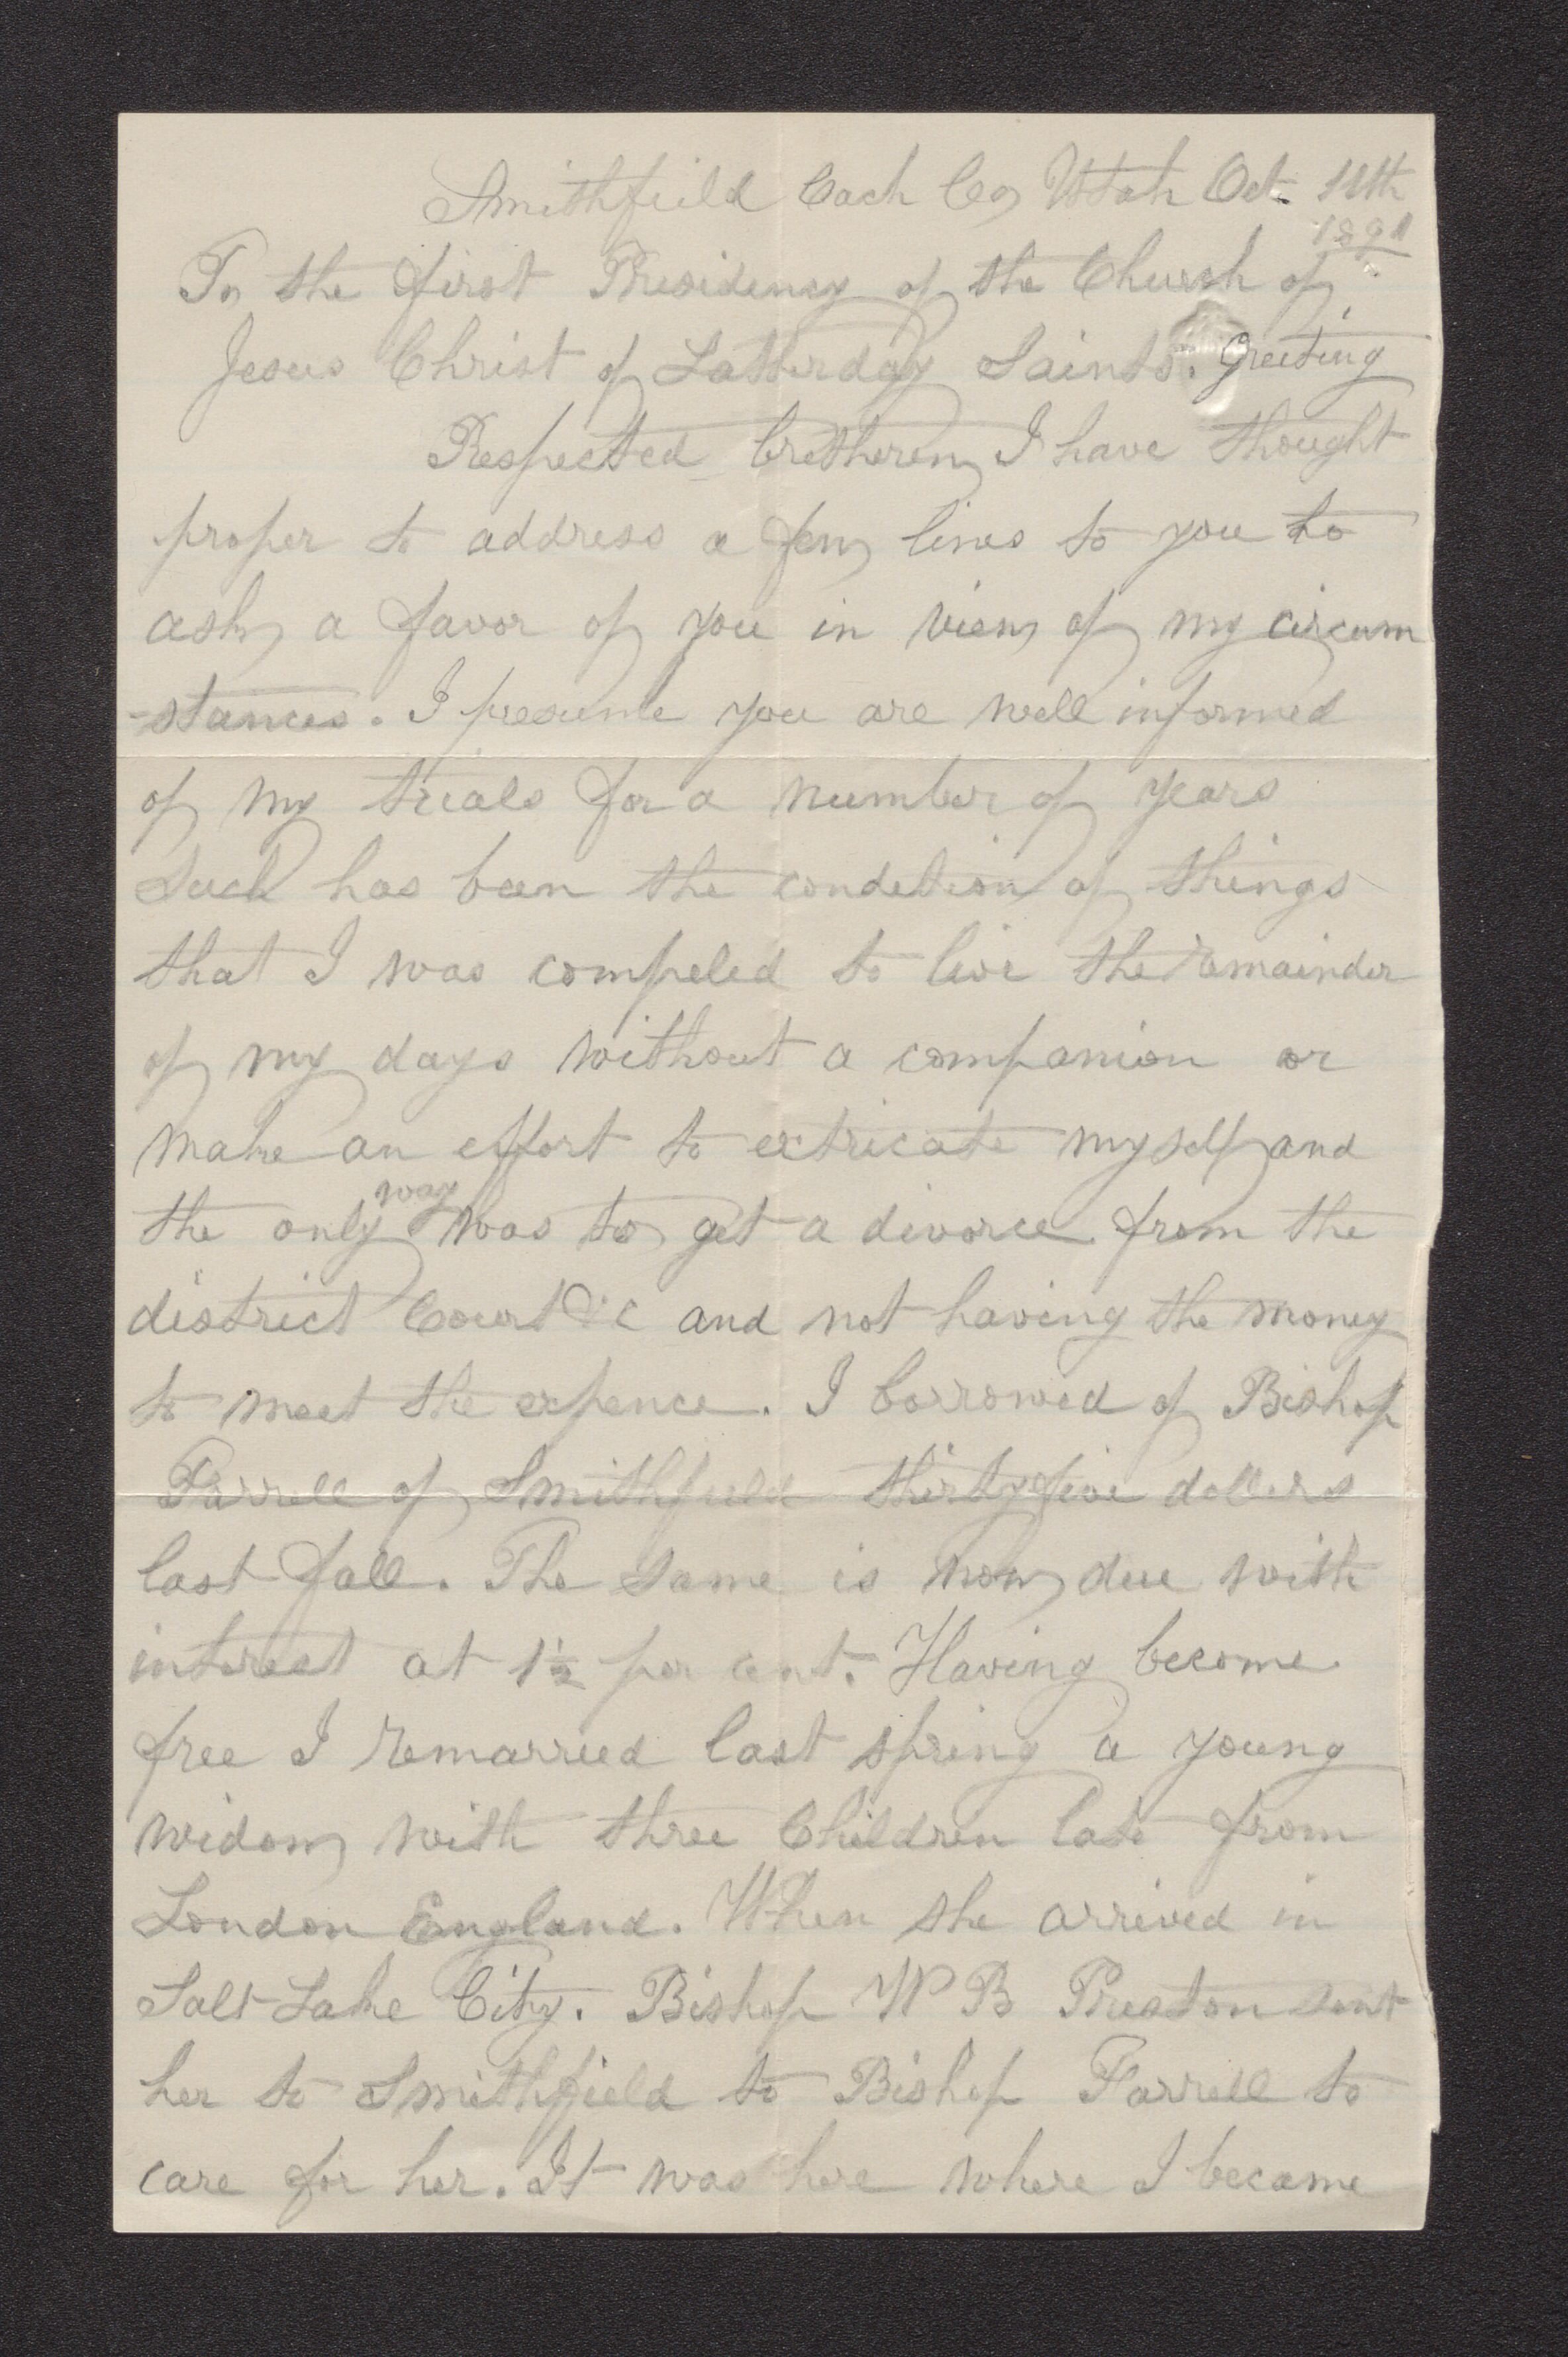 Smithfield Cach Co, Utah Oct. 11th
1891
To the first Presidency of the Church of
Jesus Christ of Latterday Saints. Greeting
Respected bretheren, I have thought
proper to address a few lines to you to
ask a favor of you in view of my circum
-stances. I presume you are well informed
of my trials for a number of years
Such has been the condetion of things
that I was compeled to live the remainder
of my days without a companion or
make an effort to extricate myself and
the only way was to get a divorce from the
district Court &c and not having the money
to meet the expence. I borrowed of Bishop
Farrell of Smithfield thirtyfive dollers
last fall. The same is now due with
interest at 1½ per cent. Having become
free I remarried last spring a young
widow with three Children late from
London England. When she arrived in
Salt Lake City. Bishop W B Preston sent
her to Smithfield to Bishop Farrell to
care for her. It was here where I became